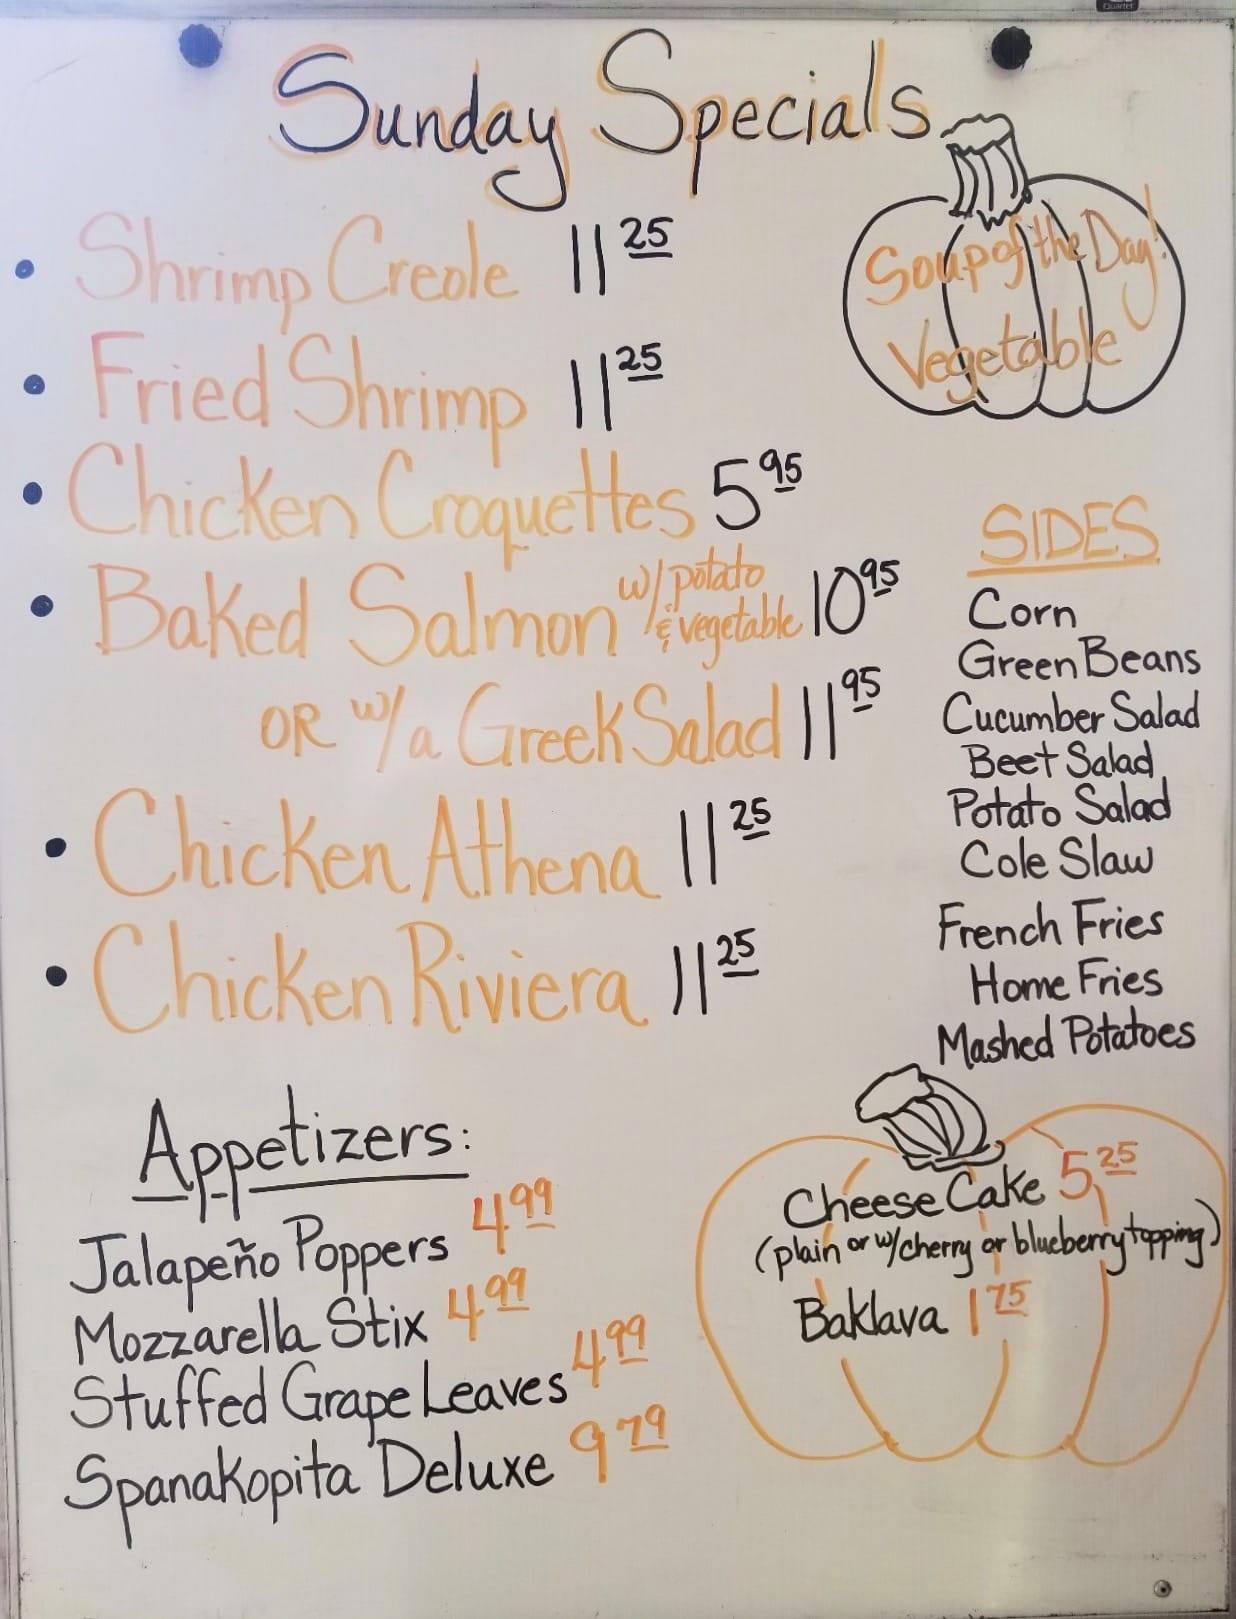 Quartet
Sunday Specials
• Shrimp Creole 11 25
• Fried Shrimp 11 25
• Chicken Croquettes 5 95
• Baked Salmon w/ potato & vegetable 10 95
OR w/a Greek Salad 11 95
• Chicken Athena 11 25
• Chicken Riviera 11 25
Soup of the Day!
Vegetable
SIDES
Corn
Green Beans
Cucumber Salad
Beet Salad
Potato Salad
Cole Slaw
French Fries
Home Fries
Mashed Potatoes
Appetizers:
Jalapeño Poppers 4 99
Mozzarella Stix 4 99
Stuffed Grape Leaves 4 99
Spanakopita Deluxe 9 79
Cheese Cake 5 25
(plain or w/cherry or blueberry topping)
Baklava 1 75